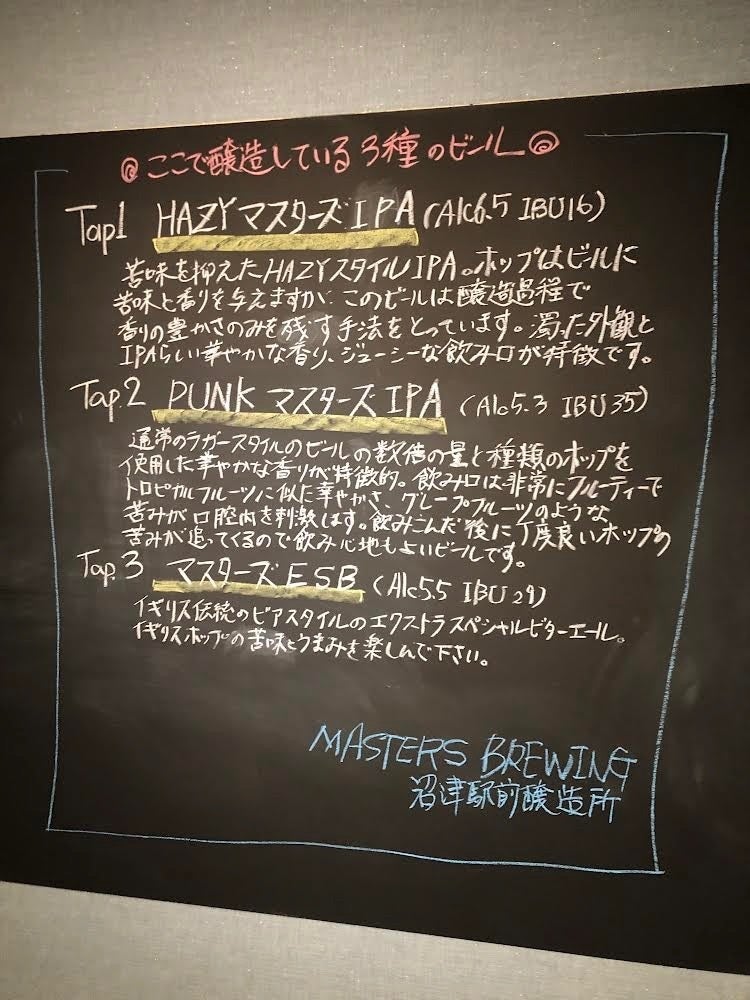 ◎ここで醸造している3種のビール◎
Tap1 HAZYマスターズIPA (Alc6.5 IBU16)
苦味を抑えたHAZYスタイルIPA。ホップはビールに
苦味と香りを与えますが、このビールは醸造過程で
香りの豊かさのみを残す手法をとっています。濁った外観と
IPAらしい華やかな香り、ジューシーな飲み口が特徴です。
Tap.2 PUNK マスターズIPA (Alc5.3 IBU35)
通常のラガースタイルのビールの数倍の量と種類のホップを
使用した華やかな香りが特徴的。飲み口は非常にフルーティーで
トロピカルフルーツに似た華やかさ、グレープフルーツのような
苦みが口腔内を刺激します。飲みこんだ後に丁度良いホップの
苦みが追ってくるので飲み心地もよいビールです。
Tap.3 マスターズESB (Alc5.5 IBU29)
イギリス伝統のビアスタイルのエクストラスペシャルビターエール。
イギリスホップの苦味とうまみを楽しんで下さい。
MASTERS BREWING
沼津駅前醸造所